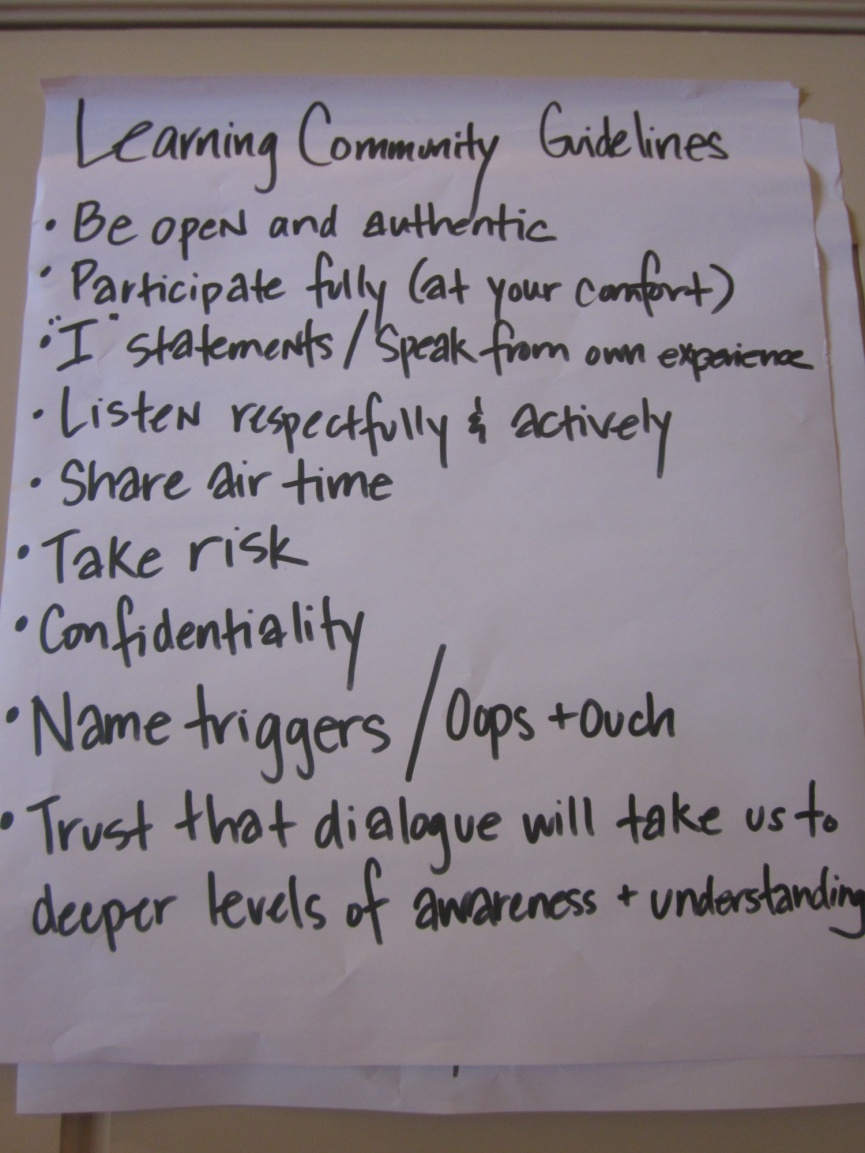 Learning Community Guidelines
• Be open and authentic
• Participate fully (at your comfort)
• "I" statements / Speak from own experience
• Listen respectfully & actively
• Share air time
• Take risk
• Confidentiality
• Name triggers / Oops + ouch
• Trust that dialogue will take us to
deeper levels of awareness + understanding